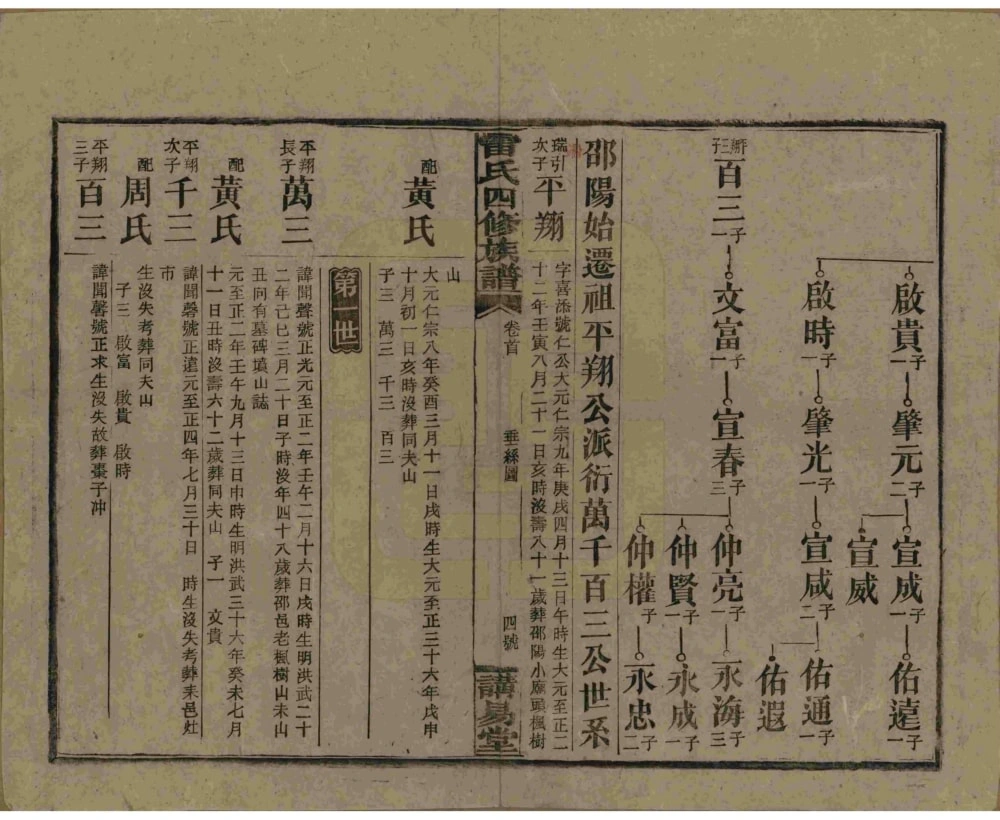 啟貴 子一 肇元 子二 宣成 子一 佑遠 子一
宣威
啟時 子一 肇光 子一 宣咸 子二 佑通 子一
佑遐
平翔三子 百三 子一 文富 子一 宣春 子三 仲亮 子一 永海 子三
仲賢 子一 永成 子一
仲權 子一 永忠 子二
邵陽始遷祖平翔公派衍萬千百三公世系
瑞引次子 平翔
字喜添號仁公大元仁宗九年庚戌四月十三日午時生大元至正二
十二年壬寅八月二十一日亥時沒壽八十一歲葬邵陽小廟頭楓樹
雷氏四修族譜 卷首 垂絲圖 四號 講易堂
山
配 黃氏
大元仁宗八年癸酉三月十一日戌時生大元至正三十六年戊申
十月初一日亥時沒葬同夫山
子三 萬三 千三 百三
第一世
平翔長子 萬三
諱聞聲號正光元至正二年壬午二月十六日戌時生明洪武二十
二年己巳三月二十日子時沒年四十八歲葬邵邑老楓樹山未山
丑向有墓碑墳山誌
配 黃氏
元至正二年壬午九月十三日申時生明洪武三十六年癸未七月
十一日丑時沒壽六十二歲葬同夫山 子一 文貴
平翔次子 千三
諱聞馨號正遠元至正四年七月三十日 時生沒失考葬耒邑灶
市
配 周氏
生沒失考葬同夫山
子三 啟富 啟貴 啟時
平翔三子 百三
諱聞馨號正求生沒失故葬棗子冲